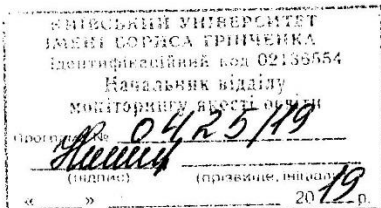 КИЇВСЬКИЙ УНІВЕРСИТЕТ
ІМЕНІ БОРИСА ГРІНЧЕНКА
Ідентифікаційний код 02136554
Начальник відділу
моніторингу якості освіти
Програма № 0425/19
(підпис) (прізвище, ініціали)
« » 2019 р.